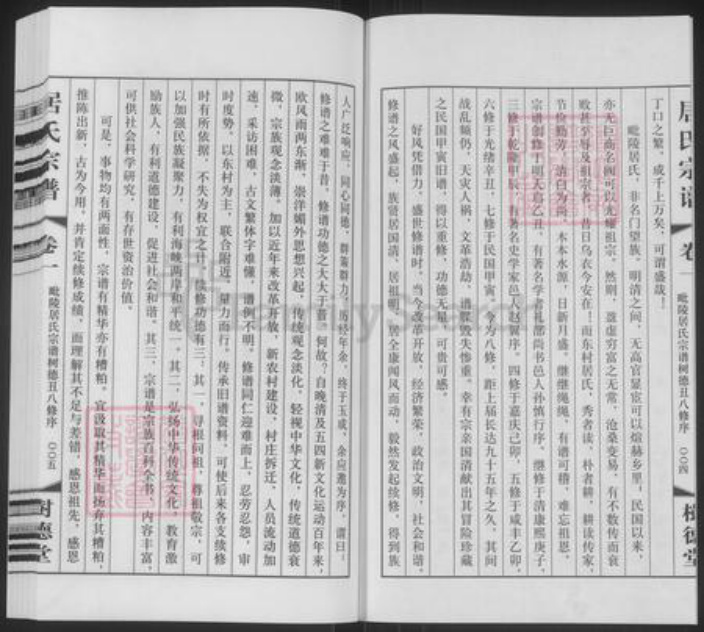 居氏宗谱 卷一 毗陵居氏宗谱树德丑八修序 〇〇四 树德堂
丁口之繁，成千上万矣，可谓盛哉！
毗陵居氏，非名门望族。明清之间，无高官显宦可以煊赫乡里，民国以来，
亦无巨商名阀可以光耀祖宗。然则，盈虚穷富之无常，沧桑变易，有不数传而衰
败甚至辱及祖宗者，昔日乌衣今安在！而东村居氏，秀者读，朴者耕，耕读传家，
节俭勤劳，清白为尚，木本水源，日新月盛。继继绳绳，有谱可稽，难忘祖恩。
宗谱创修于明天启乙丑，有著名学者礼部尚书邑人孙慎行序，继修于清康熙庚子，
三修于乾隆甲辰，有著名史学家邑人赵翼序，四修于嘉庆己卯，五修于咸丰乙卯，
六修于光绪辛丑，七修于民国甲寅，今为八修，距上届长达九十五年之久，其间
战乱频仍，天灾人祸，文革浩劫，谱牒毁失惨重。幸有宗亲国清献出其冒险珍藏
之民国甲寅旧谱，得以重修，功德无量，可贵可感。
好风凭借力，盛世修谱时。当今改革开放，经济繁荣，政治文明，社会和谐，
修谱之风盛起，族贤居国清、居祖明、居全康闻风而动，毅然发起续修，得到族
人广泛响应，同心同德，群策群力，历经年余，终于玉成，余应邀为序，谓曰：
修谱之难难于昔，修谱功德之大大于昔，何故？自晚清及五四新文化运动百年来，
欧风雨两东渐，崇洋媚外思想兴起，传统观念淡化，轻视中华文化，传统道德衰
微，宗族观念淡薄。加以近年来改革开放，新农村建设，村庄拆迁，人员流动加
速，采访困难，古文繁体字难懂，谱例不明。修谱同仁迎难而上，忍劳忍怨，审
时度势，以东村为主，联合附近，量力而行。传承旧谱资料，可使后来各支续修
时有所依据，不失为权宜之计。续修功德有三：其一，寻根问祖，尊祖敬宗，可
以加强民族凝聚力，有利海峡两岸和平统一。其二，弘扬中华传统文化，教育激
励族人，有利道德建设，促进社会和谐。其三，宗谱是宗族百科全书，内容丰富，
可供社会科学研究，有存世资治价值。
可是，事物均有两面性，宗谱有精华亦有糟粕。宜汲取其精华而扬弃其糟粕，
推陈出新，古为今用，并肯定续修成绩，而理解其不足与差错，感恩祖先，感恩
居氏宗谱 卷一 毗陵居氏宗谱树德丑八修序 〇〇五 树德堂
Family Search